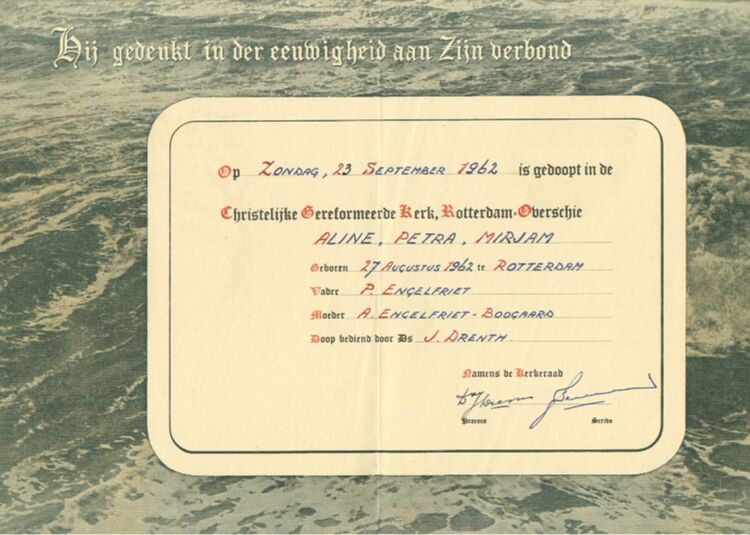 Hij gedenkt in der eeuwigheid aan Zijn verbond
Op Zondag, 23 September 1962 is gedoopt in de
Christelijke Gereformeerde Kerk, Rotterdam-Overschie
ALINE, PETRA, MIRJAM
Geboren 27 Augustus 1962 te ROTTERDAM
Vader P. ENGELFRIET
Moeder A. ENGELFRIET-BOOGAARD
Doop bediend door Ds J. DRENTH.
Namens de Kerkeraad
Praeses Scriba